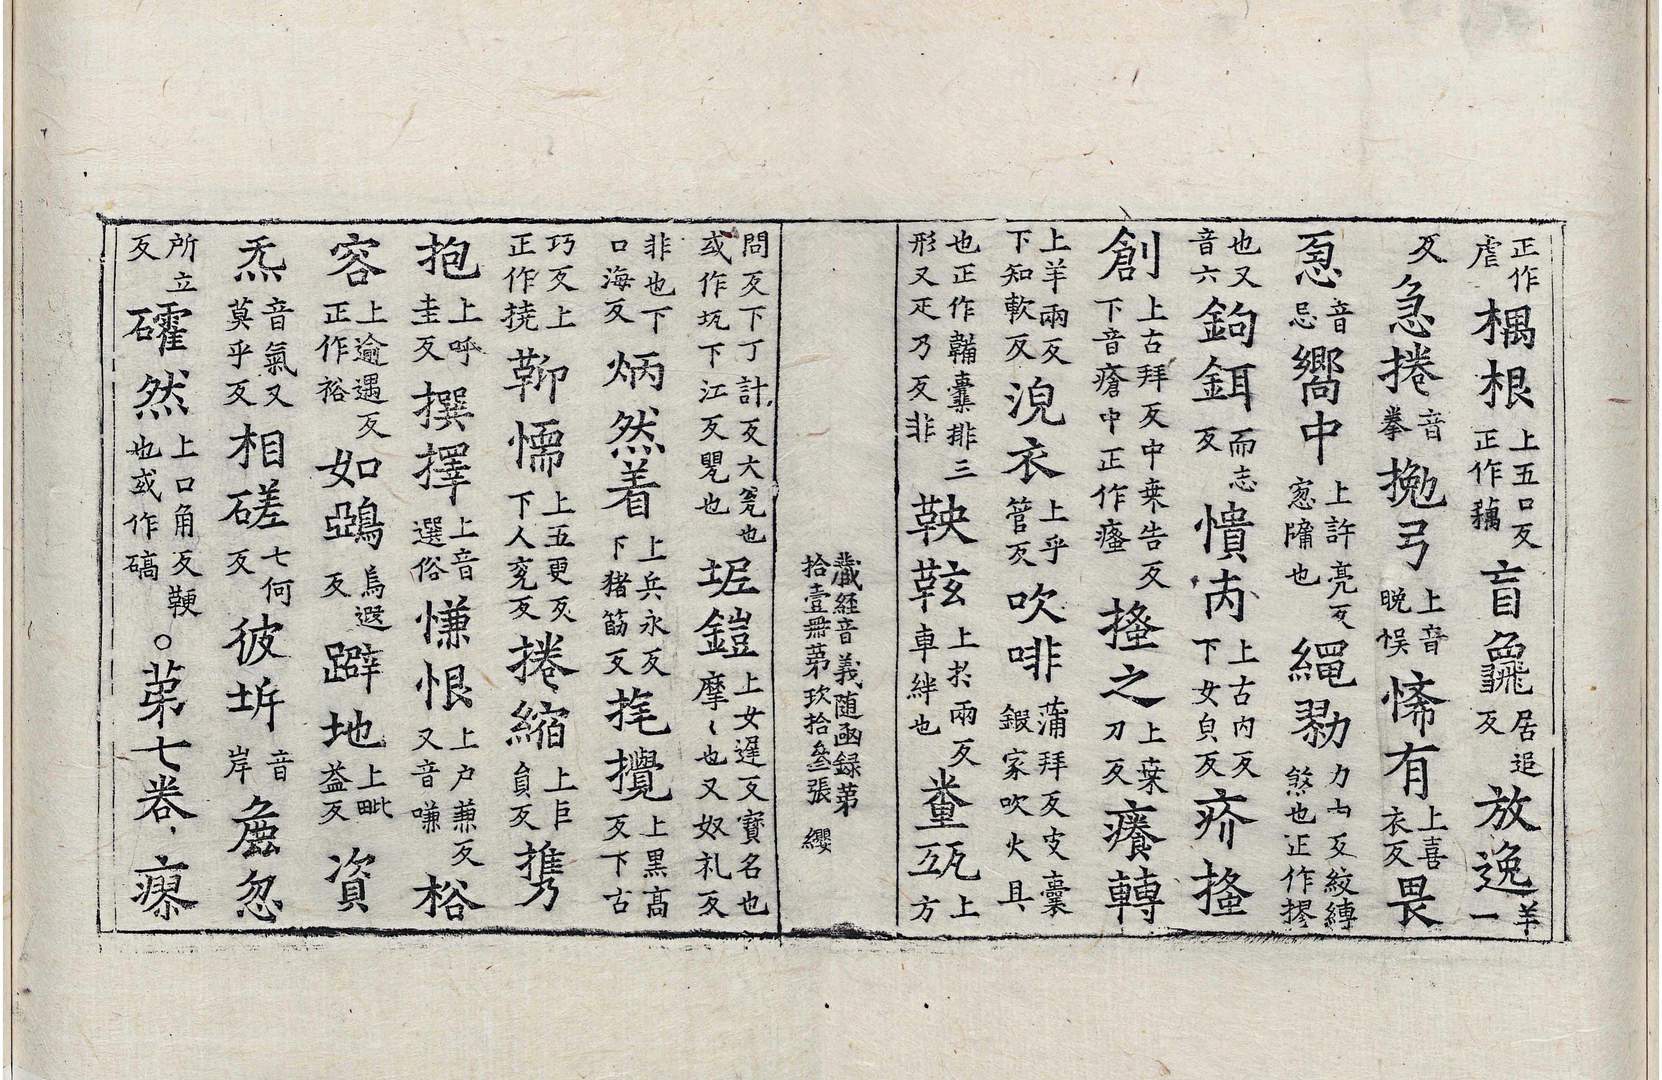 正作虐楀根上五口反正作藕盲龜居追反放逸羊一
反急捲音拳挽弓上音晚悮悕有上喜衣反畏
忌音忌嚮中上許亮反窓牖也繩勠力九反絞縛煞也正作摎
也又音六鉤鉺而志反憒丙上古内反下女皃反疥搔
創上古拜反中桒告反下音瘡中正作瘙搔之上桒刀反癢轉
上羊兩反下知軟反涀衣上乎管反吹啡蒲拜反皮囊鍜家吹火具
也正作韛橐排三形又疋乃反非鞅鞍上扵兩反車絆也瓽瓨上方
藏經音義随函録第拾壹冊苐玖拾叄張 纓
問反下丁計反大瓮也或作坑下江反甖也坭鎧上女遲反寶名也摩〻也又奴礼反
非也下口海反炳然上兵永反着下猪筯反挓攪上黑高反下古
巧反上正作撓鞕愞上五更反下人兖反捲縮上巨負反攜
抱上呼圭反撰擇上音選俗慊恨上户兼反又音嗛㭲
容上逾遇反正作裕如鵶烏遐反躃地上毗益反資
炁音氣又莫乎反相磋七何反彼㘸音岸麁忽
所立反礭然上口角反鞕也或作碻○苐七卷瘝